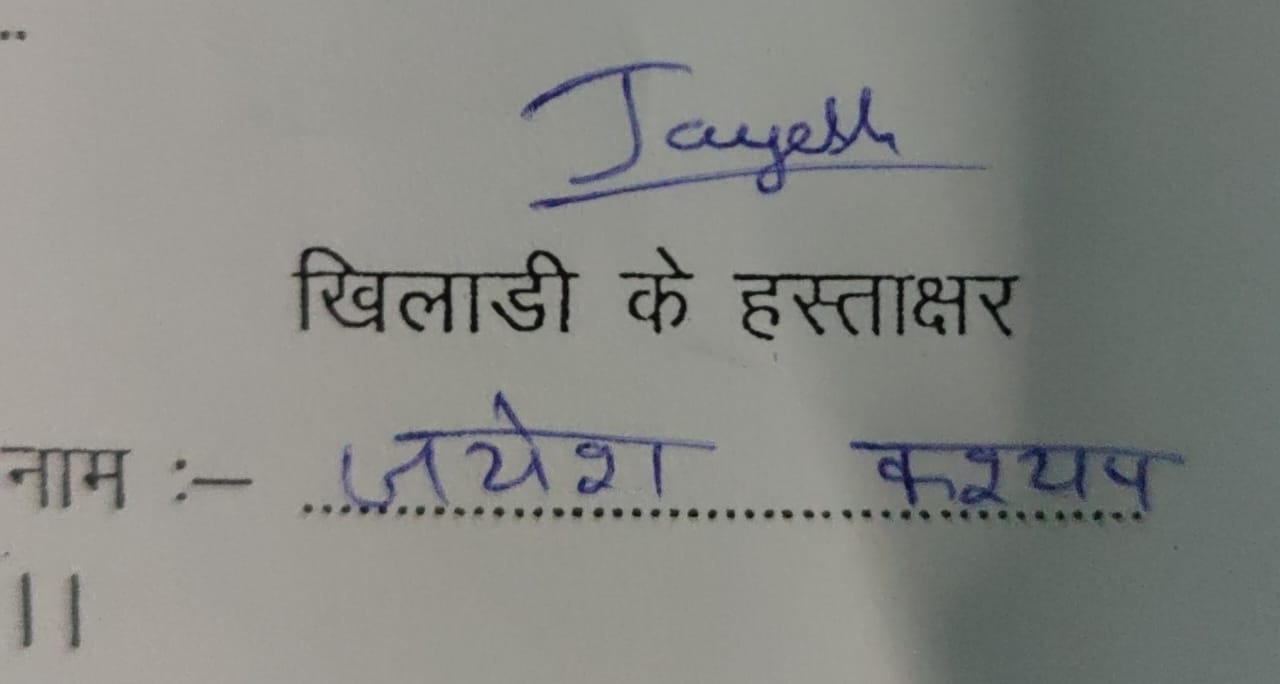 ..
Jayesh
खिलाडी के हस्ताक्षर
नाम :– जयेश कश्यप
||